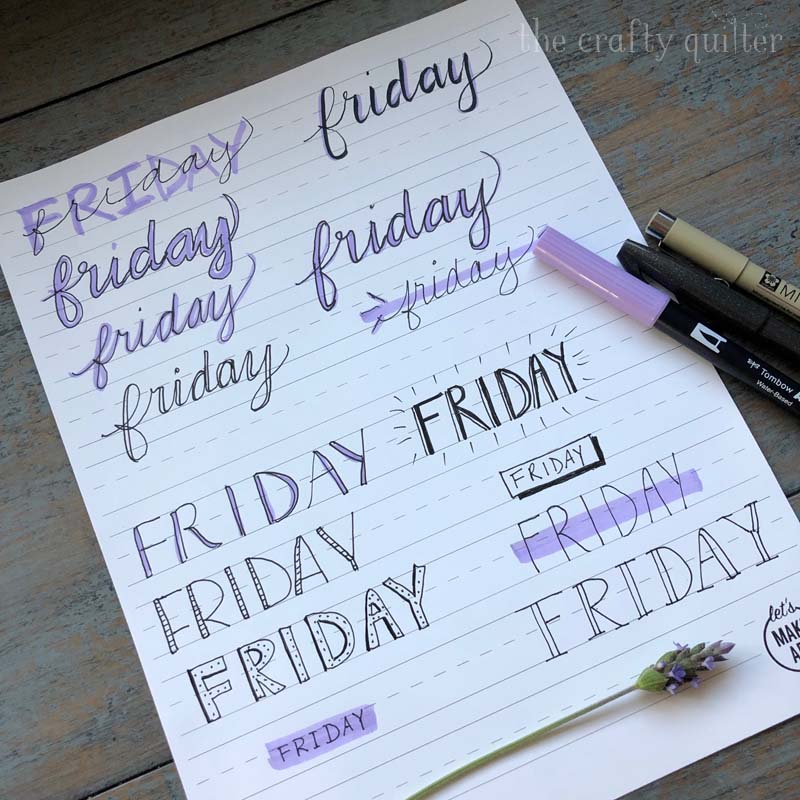 the crafty quilter
friday
FRIDAY
friday
friday
friday
friday
friday
friday
FRIDAY
FRIDAY
FRIDAY
FRIDAY
FRIDAY
FRIDAY
FRIDAY
FRIDAY
let's
MAK
Tombow
Water-Based